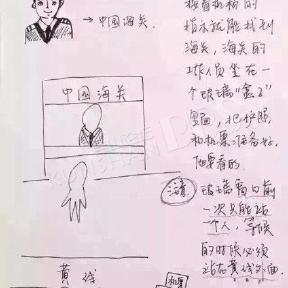 →中国海关.
指示就能找到
海关,海关的
工作人员坐在一
个玻璃“盒子”
里面,把护照
和机票准备好,
他要看的
中国海关
注意
玻璃窗口前
一次只能站
个人,等候
的时候必须
站在黄线外面.
黄 线